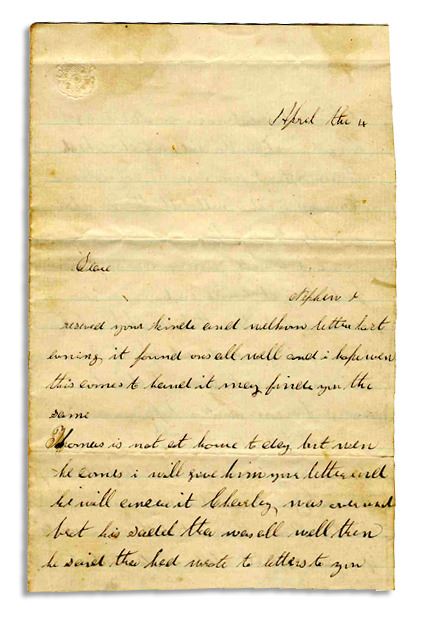 April the 4
Deare
Nephew I
reseved your kinde and welkom letter last
evning it found ous all well and i hope wen
this comes to hand it may finde you the
same
Thomas is not at home to day but wen
he coms i will give him your letter and
he will answer it Charley was over
but his the was all well then
he said thee had wrote to letters to you